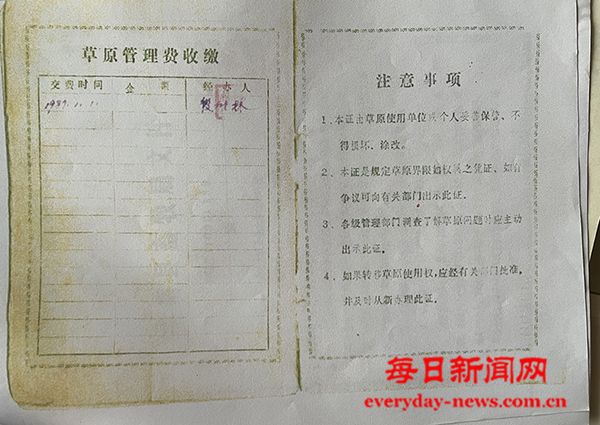 草原管理费收缴
交费时间 金额 经办人
1987.1.1.
注意事项
1、本证由草原使用单位或个人妥善保管、不
得损坏、涂改。
2、本证是规定草原界限的权属之凭证、如有
争议可向有关部门出示此证。
3、各级管理部门调查了解草原问题时应主动
出示此证。
4、如果转移草原使用权,应经有关部门批准,
并及时从新办理此证。
每日新闻网
everyday-news.com.cn